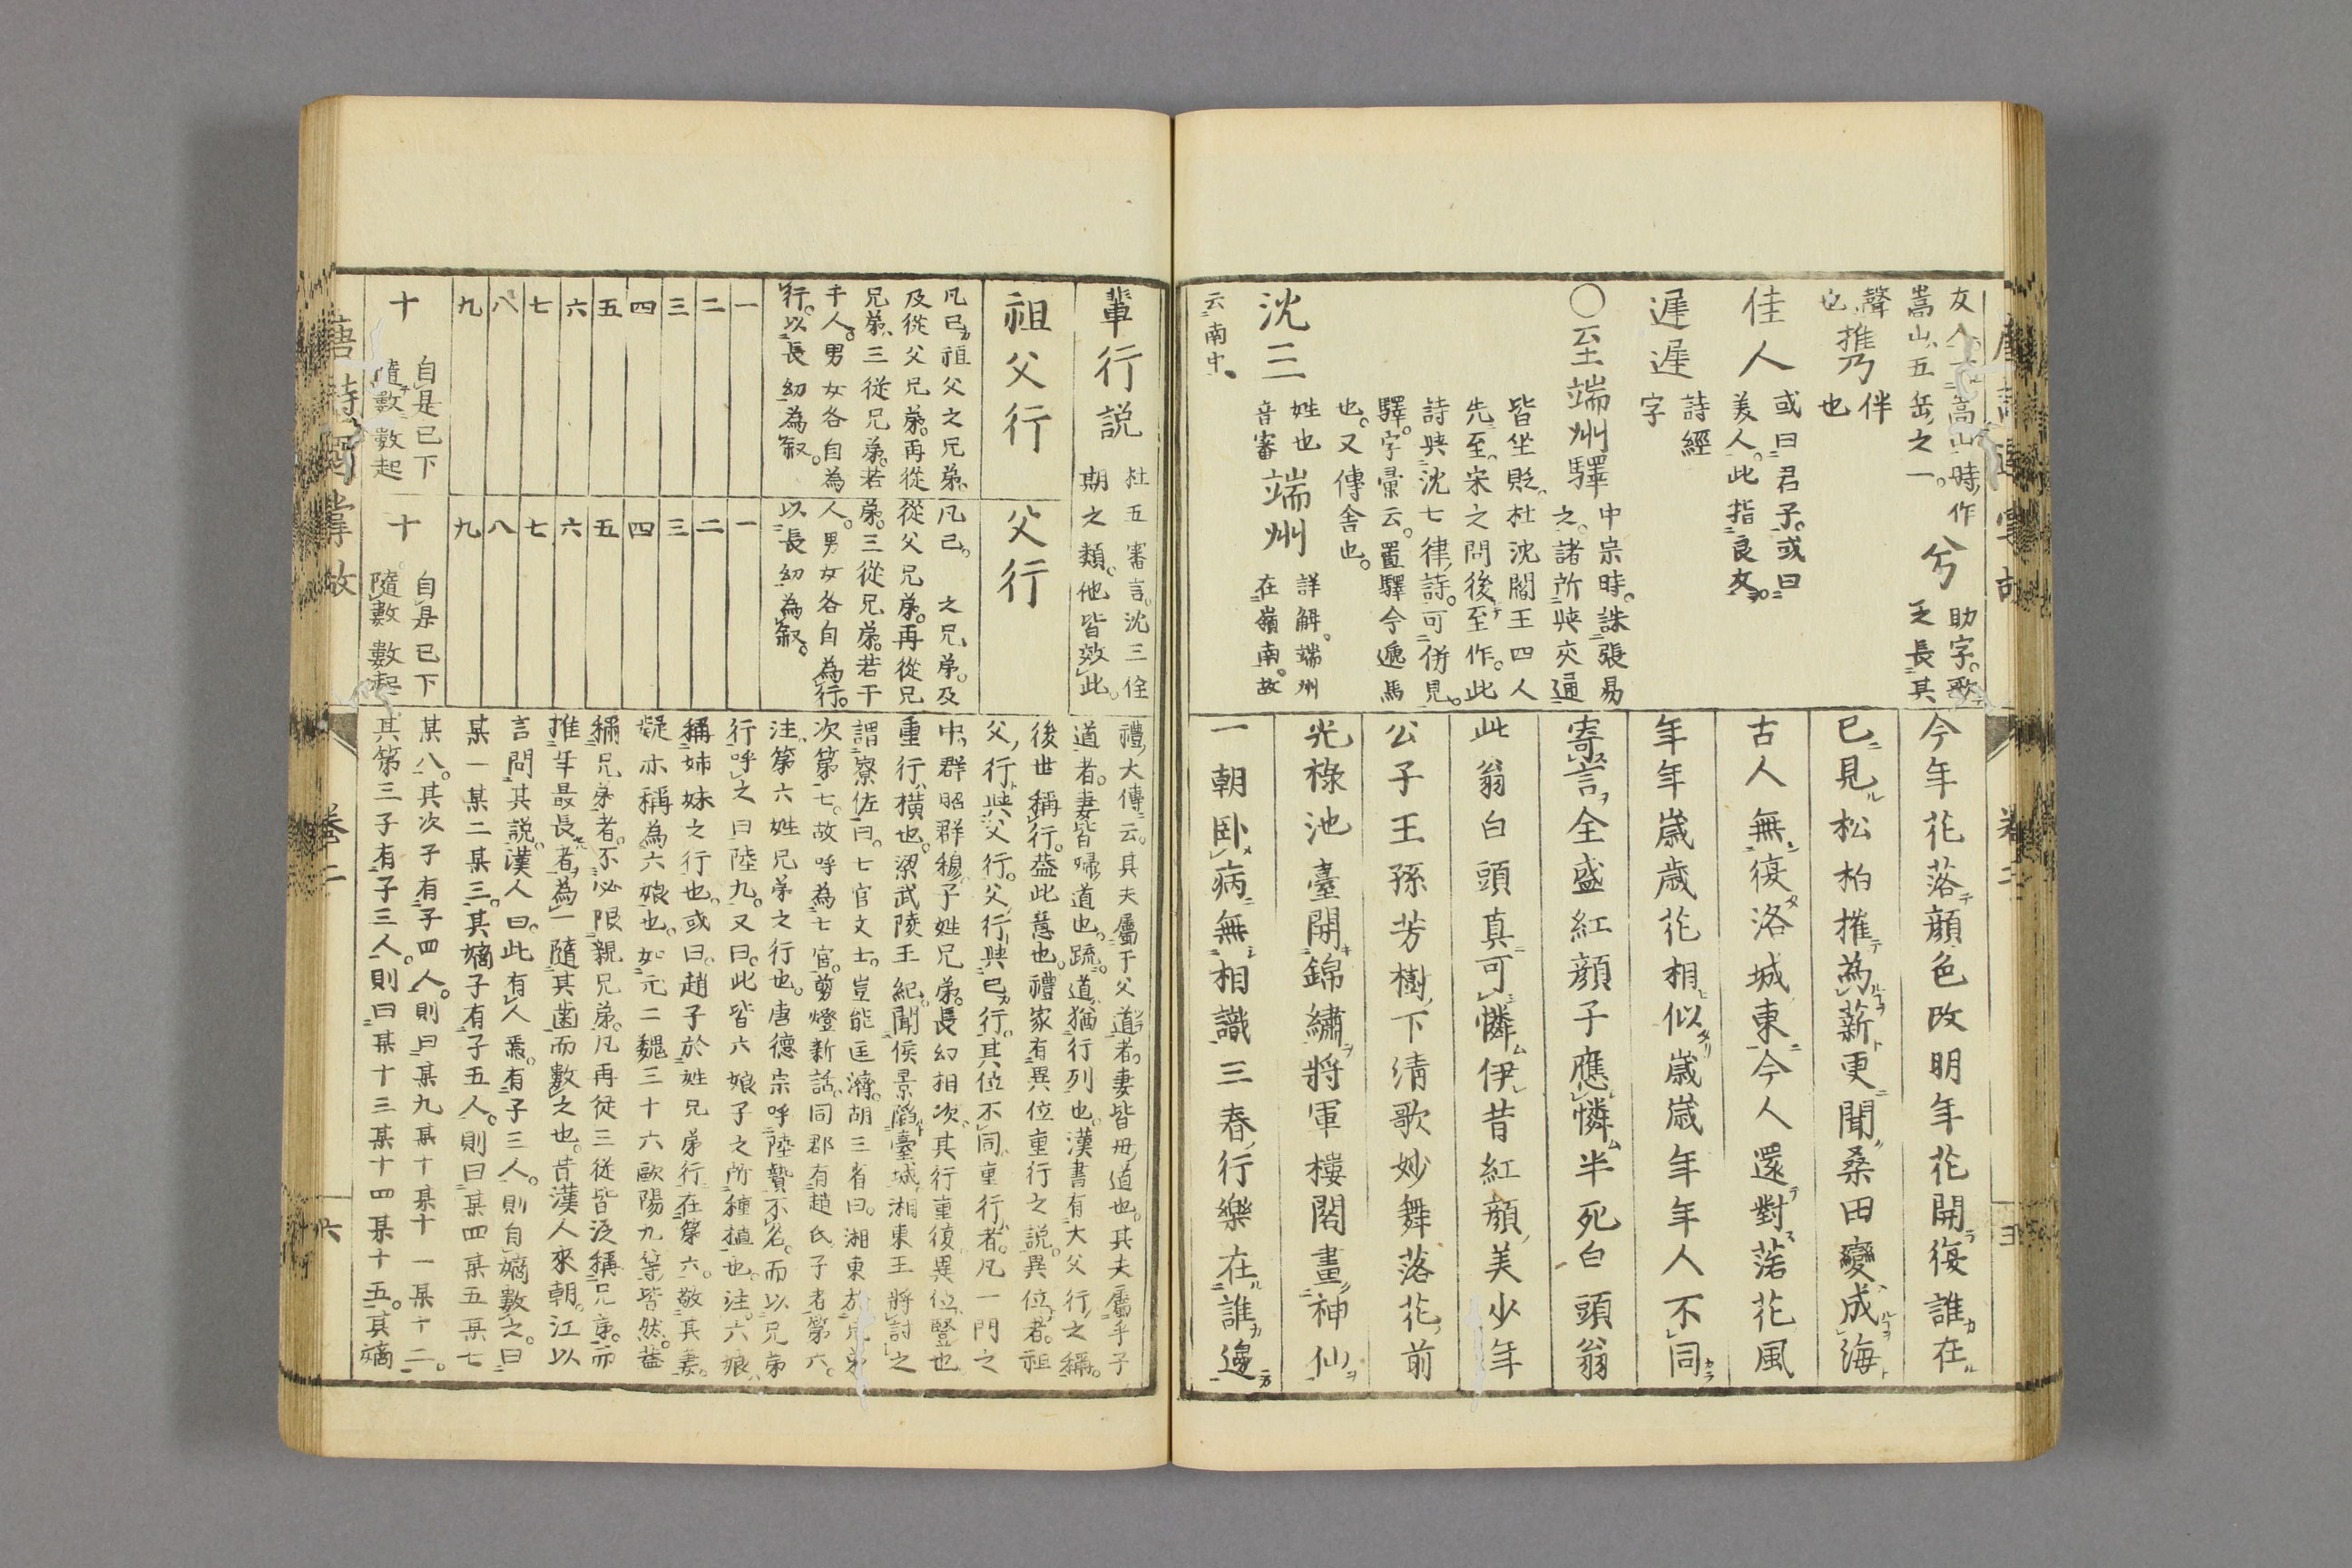 友人
嵩山五岳之一
嵩山時作
兮
助字歌
之長其
聲也
攜
伴也
佳人
或曰君子或曰
美人此指良友
遲遲
詩經
字
○至端州驛
中宗時誅張易
之諸所與交通
皆坐貶杜沈閻王四人
先至宋之問後至作此
詩與沈七律詩可併見
驛字彙云置驛今遞馬
也又傳舍也
沈三
姓也
音審
端州
詳解端州
在嶺南故
云南中
今年花落顏色改明年花開復誰在
已見松柏摧為薪更聞桑田變成海
古人無復洛城東今人還對落花風
年年歲歲花相似歲歲年年人不同
寄言全盛紅顏子應憐半死白頭翁
此翁白頭真可憐伊昔紅顏美少年
公子王孫芳樹下清歌妙舞落花前
光祿池臺開錦繡將軍樓閣畫神仙
一朝臥病無相識三春行樂在誰邊
輩行説
杜五審言沈三佺
期之類他皆效此
祖父行
凡己祖父之兄弟
及從父兄弟再從
兄弟三從兄弟若
干人男女各自為
行以長幼為叙
一
二
三
四
五
六
七
八
九
十
自是已下
隨數數起
父行
凡己之兄弟及
從父兄弟再從兄
弟三從兄弟若干
人男女各自為行
以長幼為叙
一
二
三
四
五
六
七
八
九
十
自是已下
隨數數起
禮大傳云其夫屬于父道者妻皆母道也其夫屬乎子
道者妻皆婦道也疏道猶行列也漢書有大父行之稱
後世稱行蓋此意也禮家有異位重行之説異位者祖
父行與父行父行與己行其位不同重行者凡一門之
中群昭群穆子姓兄弟長幼相次其行重復異位豎也
重行橫也梁武陵王紀聞侯景陷臺城湘東王將討之
謂寮佐曰七官文士豈能匡濟胡三省曰湘東於兄弟
次第七故呼為七官剪燈新話同郡有趙氏子者第六
注第六姓兄弟之行也唐德宗呼陸贄不名而以兄弟
行呼之曰陸九又曰此皆六娘子之所種植也注六娘
稱姉妹之行也或曰趙子於姓兄弟行在第六敬其妻
疑亦稱為六娘也如元二魏三十六歐陽九等皆然蓋
稱兄弟者不必限親兄弟凡再從三從皆泛稱兄弟而
推年最長者為一隨其齒而數之也昔漢人來朝江以
言問其説漢人曰此有人焉有子三人則自嫡數之曰
某一某二某三其嫡子有子五人則曰某四某五某七
某八其次子有子四人則曰某九某十某十一某十二
其第三子有子三人則曰某十三某十四某十五其嫡
唐詩
掌故
卷二
六